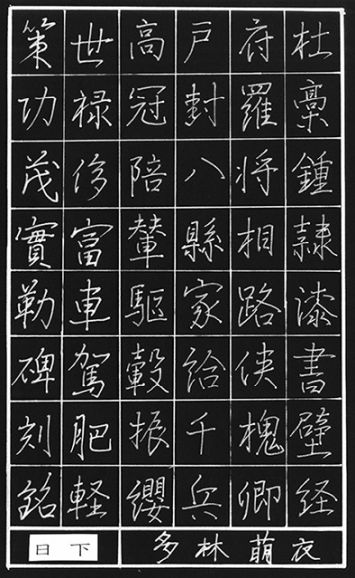 杜稾鍾隷漆書壁経
府羅将相路侠槐卿
戸封八縣家給千兵
高冠陪輦驅轂振纓
世禄侈富車駕肥軽
策功茂實勒碑刻銘
日下 多林萌衣